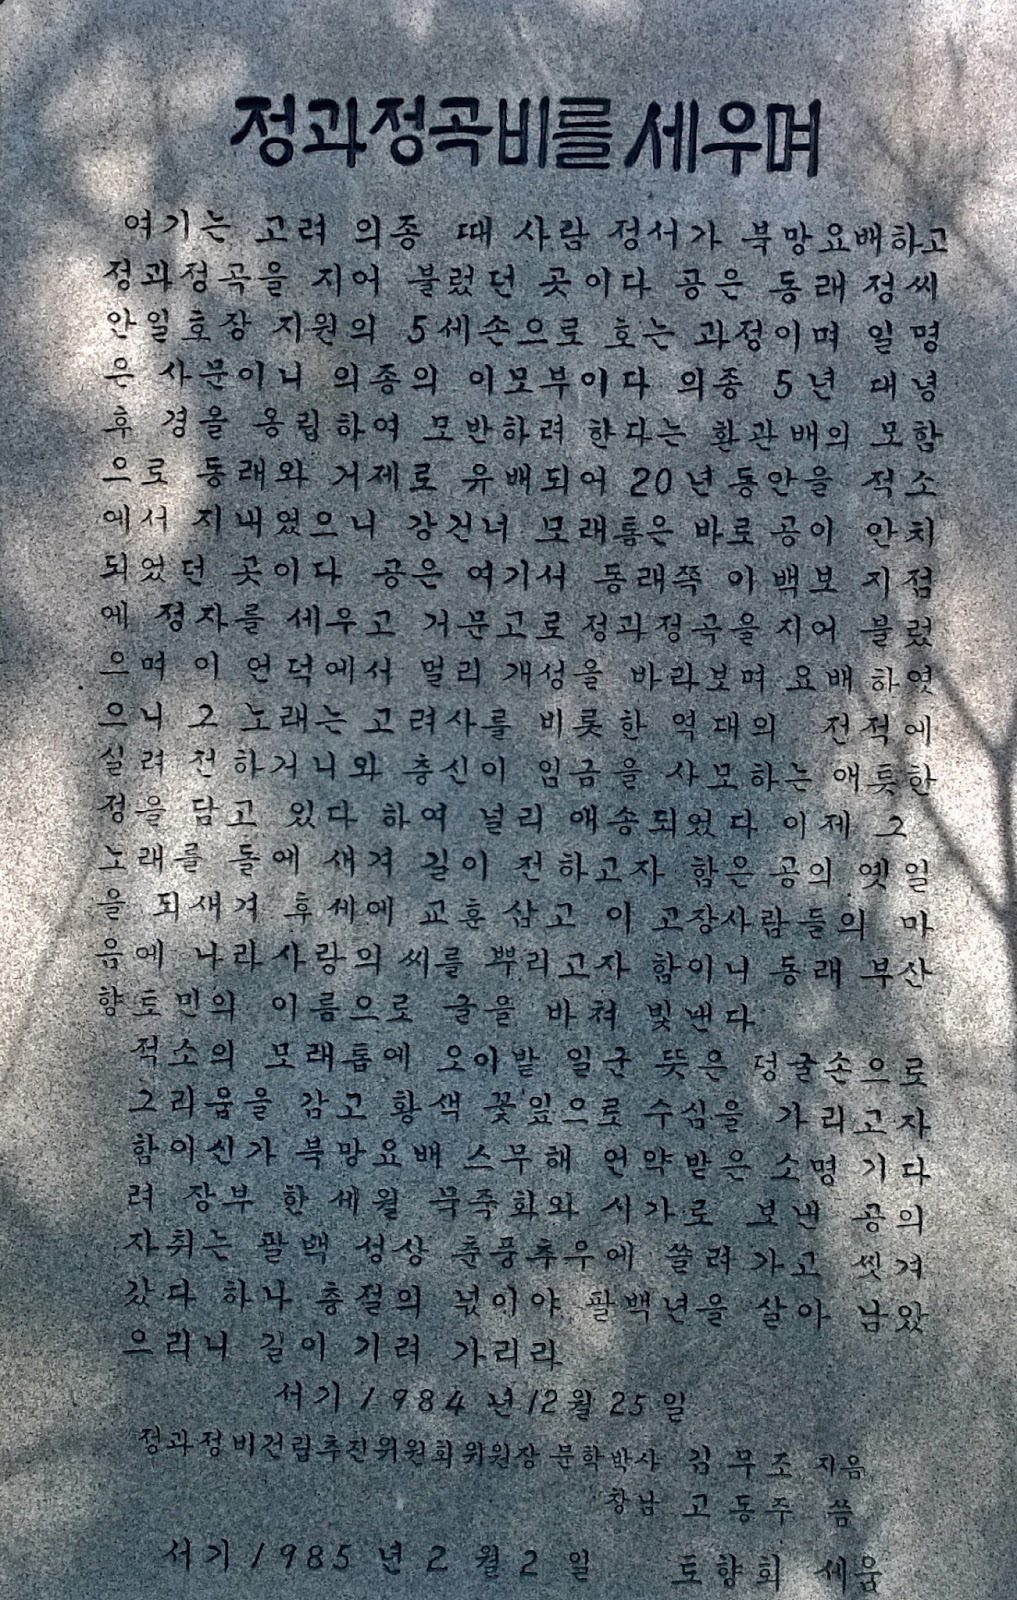 정과정곡비를 세우며
여기는 고려 의종 때 사람 정서가 북망요배하고
정과정곡을 지어 불렀던 곳이다 공은 동래 정씨
안일호장 지원의 5세손으로 호는 과정이며 일명
은 사문이니 의종의 이모부이다 의종 5년 대녕
후 경을 옹립하여 모반하려 한다는 환관배의 모함
으로 동래와 거제로 유배되어 20년동안을 적소
에서 지내었으니 강건너 모래톱은 바로 공이 안치
되었던 곳이다 공은 여기서 동래쪽 이백보 지점
에 정자를 세우고 거문고로 정과정곡을 지어 불렀
으며 이 언덕에서 멀리 개성을 바라보며 요배하였
으니 그 노래는 고려사를 비롯한 역대의 전적에
실려 전하거니와 충신이 임금을 사모하는 애틋한
정을 담고 있다 하여 널리 애송되었다 이제 그
노래를 돌에 새겨 길이 전하고자 함은 공의 옛일
을 되새겨 후세에 교훈 삼고 이 고장사람들의 마
음에 나라사랑의 씨를 뿌리고자 함이니 동래 부산
향토민의 이름으로 글을 바쳐 빛낸다
적소의 모래톱에 오이밭 일군 뜻은 덩굴손으로
그리움을 감고 황색 꽃잎으로 수심을 가리고자
함이신가 북망요배 스무해 언약받은 소명 기다
려 장부 한 세월 묵죽화와 시가로 보낸 공의
자취는 팔백 성상 춘풍추우에 쓸려가고 씻겨
갔다 하나 충절의 넋이야 팔백년을 살아 남았
으리니 길이 기려 가리라
서기 1984년 12월 25일
정과정비건립추진위원회위원장 문학박사 김무조 지음
창남 고동주 씀
서기 1985년 2월 2일 토향회 세움